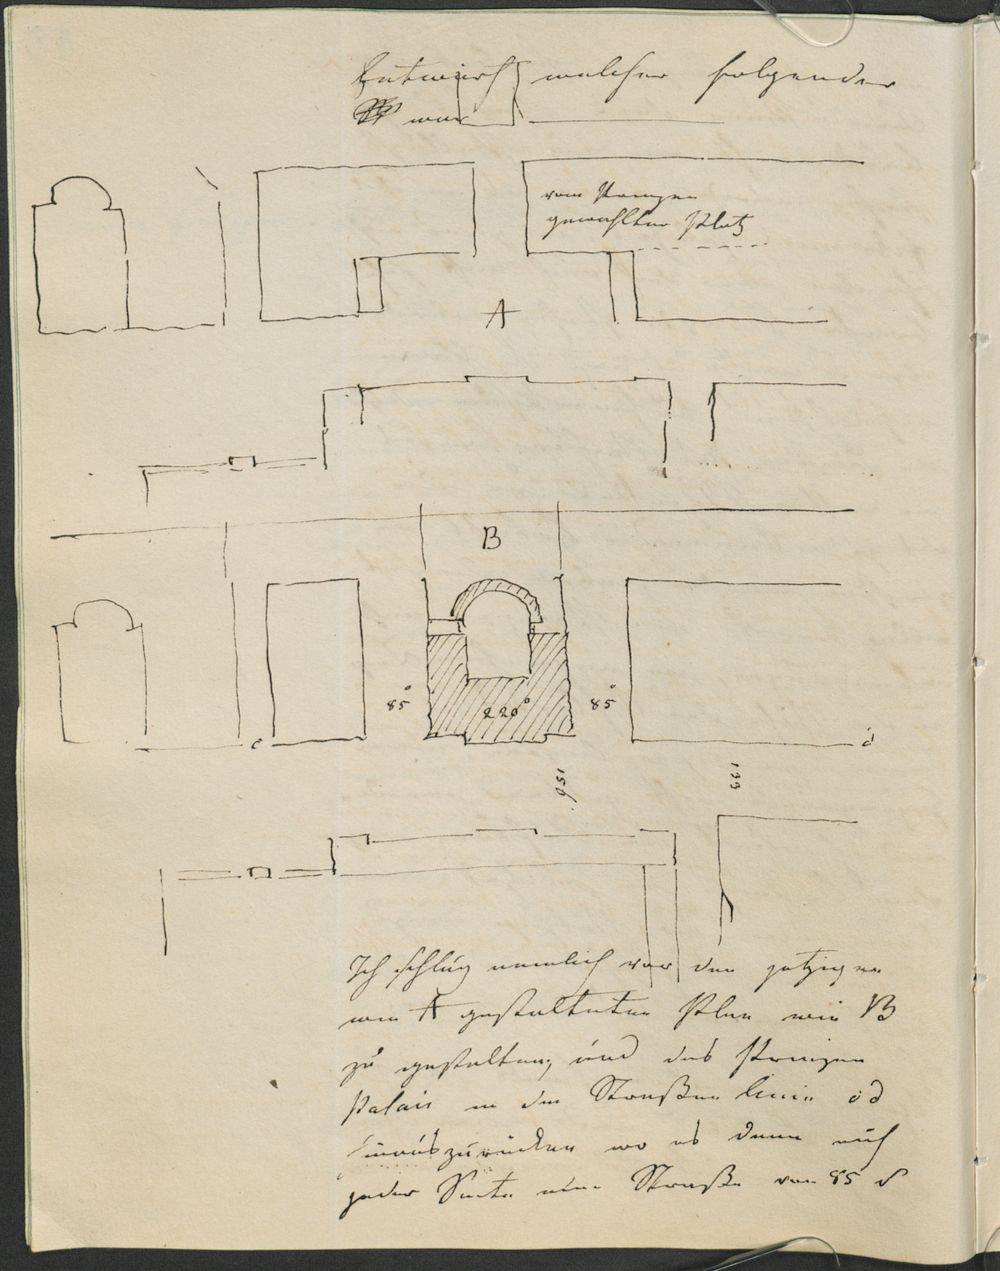 Entwurf welcher folgender
war
vom Prinzen
gewählter Platz
A
B
85°
220°
85°
c
d
156
133
Ich schlug nemlich vor den jetzigen
wie A gestalteten Plan wie B
zu gestalten, und das Prinzen
Palais in den Straßen linie cd
hinauszurücken wo es dann auf
jeder Seite eine Straße von 85